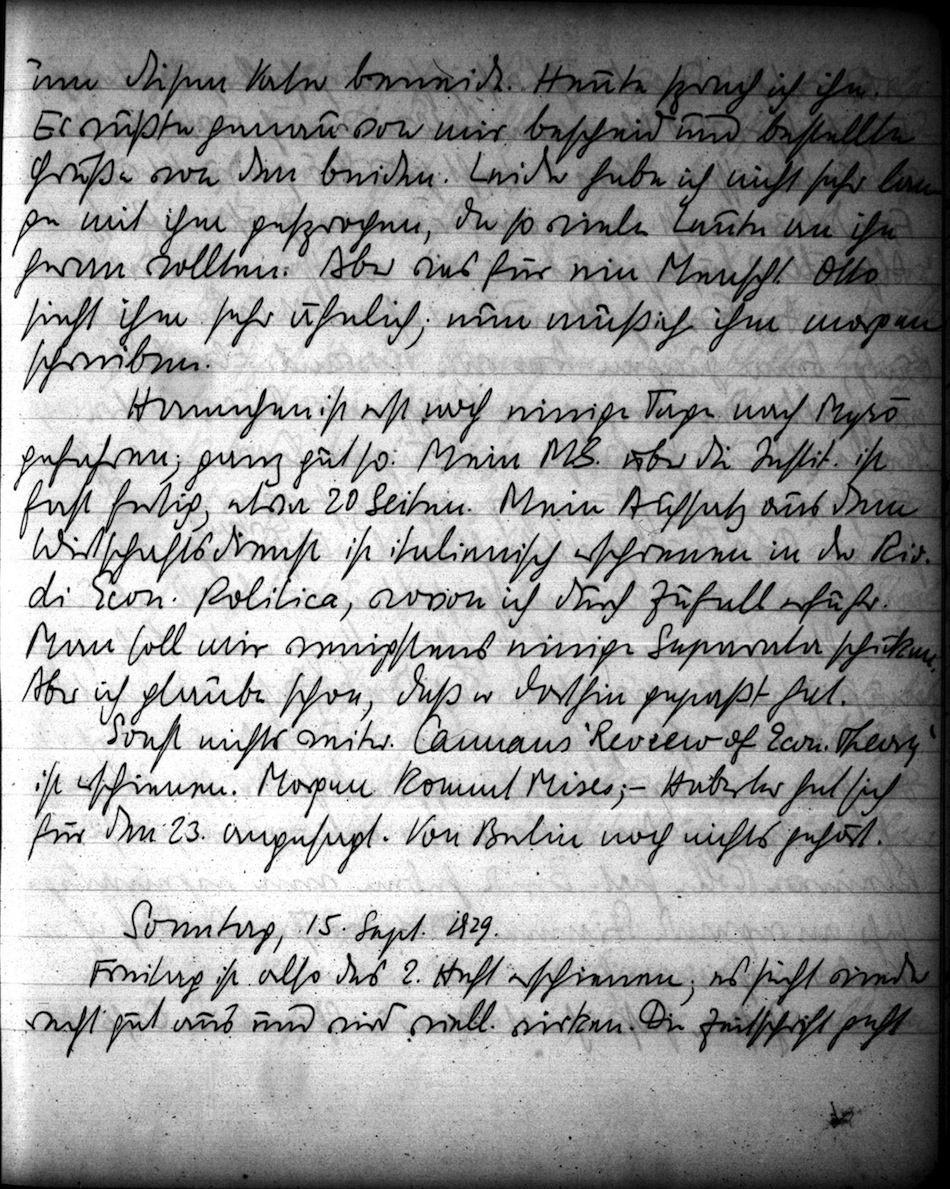 um diesen Vater beneide. Heute sprach ich ihn.
Er wußte genau von mir bescheid und bestellte
Grüße von den beiden. Leider habe ich nicht sehr lan
ge mit ihm gesprochen, da so viele Leute an ihn
heran wollten. Aber was für ein Mensch! Otto
sieht ihm sehr ähnlich; nun muß ich ihm morgen
schreiben.
Hannchen ist erst noch einige Tage nach
gefahren; ganz gut so. Mein MS. über die Instit. ist
fast fertig, etwa 20 Seiten. Mein Aufsatz aus dem
Wirtschaftsdienst ist italienisch erschienen in der Riv.
di Econ. Politica, wovon ich durch Zufall erfuhr.
Man soll mir wenigstens einige Separata schicken.
Aber ich glaube schon, daß er dorthin gepaßt hat.
Sonst nichts weiter. Cannans "Review of Econ. Theory"
ist erschienen. Morgen kommt Mises; – Haberler hat sich
für den 23. angesagt. Von Berlin noch nichts gehört.
Sonntag, 15. Sept. 1929.
Freitag ist also das 2. Heft erschienen; es sieht wieder
recht gut aus und wird viell. wirken. Die Zeitschrift geht